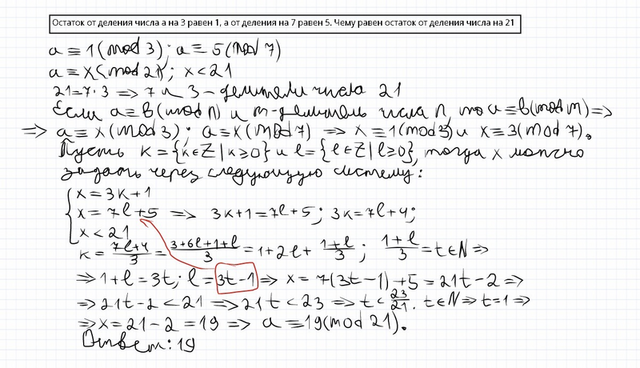 Остаток от деления числа а на 3 равен 1, а от деления на 7 равен 5. Чему равен остаток от деления числа на 21
a ≡ 1(mod 3); a ≡ 5(mod 7)
a ≡ x(mod 21); x < 21
21 = 7·3 => 7 и 3 - делители числа 21
Если a ≡ b(mod n) и m - делитель числа n, то a ≡ b(mod m) =>
=> a ≡ x(mod 3); a ≡ x(mod 7) => x ≡ 1(mod 3) и x ≡ 3(mod 7).
Пусть k = {k ∈ Z | k ≥ 0} и l = {l ∈ Z | l ≥ 0}, тогда x можно
задать через следующую систему:
x = 3k + 1
x = 7l + 5 => 3k + 1 = 7l + 5; 3k = 7l + 4;
x < 21
k = (7l + 4)/3 = (3 + 6l + 1 + l)/3 = 1 + 2l + (1 + l)/3; (1 + l)/3 = t ∈ N =>
=> 1 + l = 3t; l = 3t - 1 => x = 7(3t - 1) + 5 = 21t - 2 =>
=> 21t - 2 < 21 => 21t < 23 => t < 23/21. t ∈ N => t = 1 =>
=> x = 21 - 2 = 19 => a ≡ 19(mod 21).
Ответ: 19